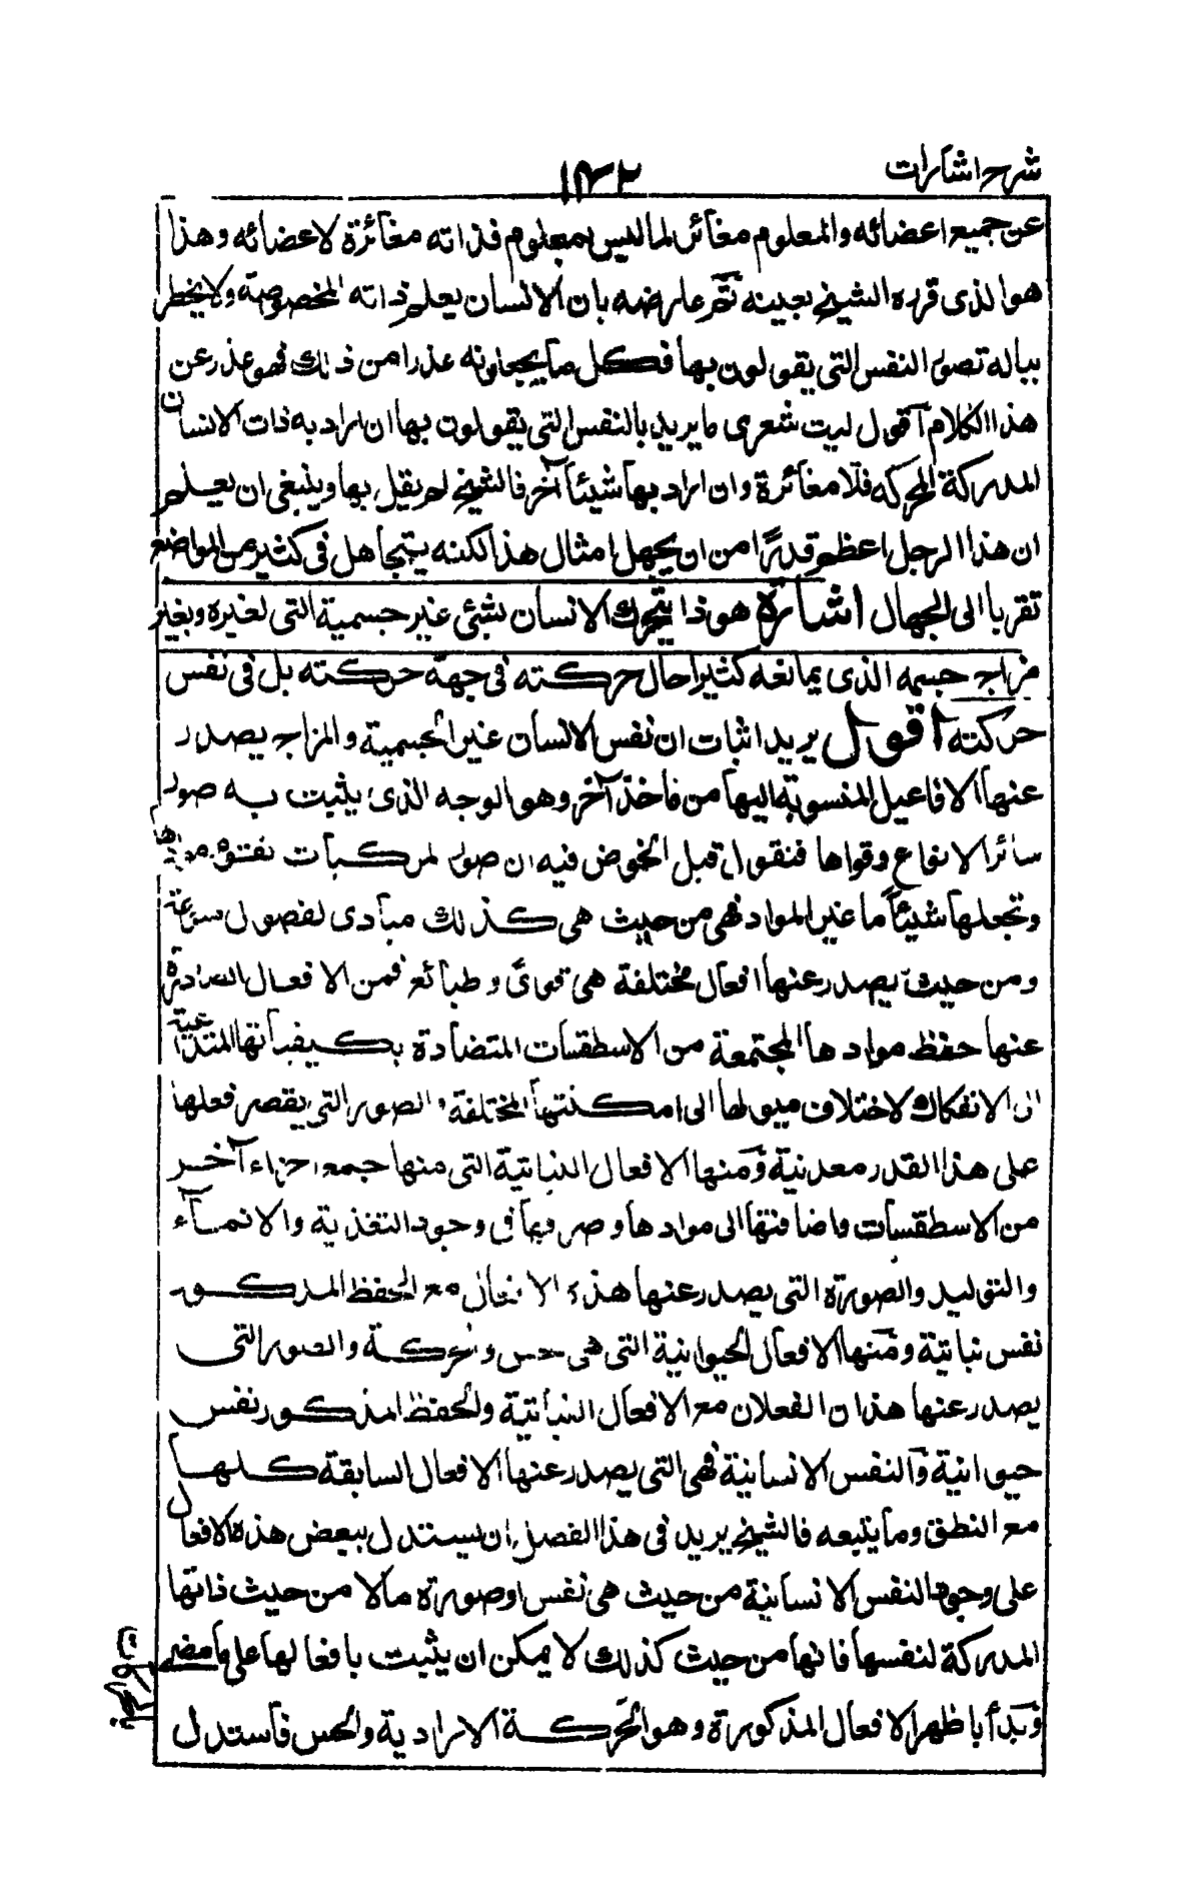 شرح اشارات
١٣٢
عن جميع اعضائه والمعلوم مغائر لما ليس بمعلوم فذاته مغائرة لاعضائه وهذا
هو الذى قرره الشيخ بعينه ثم عارضه بان الانسان يعلم ذاته المخصوصة ولا يخطر
بباله تصور النفس التى يقولون بها فكل ما يجعلونه عذرا من ذلك فهو عذر عن
هذا الكلام اقول ليت شعرى ما يريد بالنفس التى يقولون بها ان اراد به ذات الانسان
المدركة المحركه فلا مغائرة وان اراد بها شيئا آخر فالشيخ لم يقل بها وينبغى ان يعلم
ان هذا الرجل اعظم قدرًا من ان يجهل امثال هذا لكنه يتجاهل فى كثير من المواضع
تقربا الى الجهال اشارة هو ذا يتحرك الانسان بشئ غير جسمية التى لغيره وبغير
مزاج جسمه الذى يمانعه كثيرا حال حركته فى جهة حركته بل فى نفس
حركته اقول يريد اثبات ان نفس الانسان غير الجسمية والمزاج يصدر
عنها الافاعيل المنسوبة اليها من مأخذ آخر وهو الوجه الذى يثبت به صور
سائر الانواع وقواها فنقول قبل الخوض فيه ان صور المركبات تقوّم موادها
وتجعلها شيئاً ما غير المواد فهى من حيث هى كذلك مبادى لفصول منوعة
ومن حيث يصدر عنها افعال مختلفة هى قوىً وطبائع فمن الافعال الصادرة
عنها حفظ موادها المجتمعة من الاسطقسات المتضادة بكيفياتها المتداعية
الى الانفكاك لاختلاف ميولها الى امكنتها المختلفة والصور التى يقصر فعلها
على هذا القدر معدنية ومنها الافعال النباتية التى منها جمع اجزاء آخر
من الاسطقسات واضافتها الى موادها وصرفها فى وجوه التغذية والانماء
والتوليد والصورة التى يصدر عنها هذه الافعال مع الحفظ المذكور
نفس نباتية ومنها الافعال الحيوانية التى هى حس وحركة والصور التى
يصدر عنها هذان الفعلان مع الافعال النباتية والحفظ المذكور نفس
حيوانية والنفس الانسانية فهى التى يصدر عنها الافعال السابقة كلها
مع النطق وما يتبعه فالشيخ يريد فى هذا الفصل ان يستدل ببعض هذه الافعال
على وجود النفس الانسانية من حيث هى نفس او صورة ما لا من حيث ذاتها
المدركة لنفسها فانها من حيث كذلك لا يمكن ان يثبت بافعالها على ما مضى
وبدأ باظهر الافعال المذكورة وهو الحركة الارادية والحس فاستدل